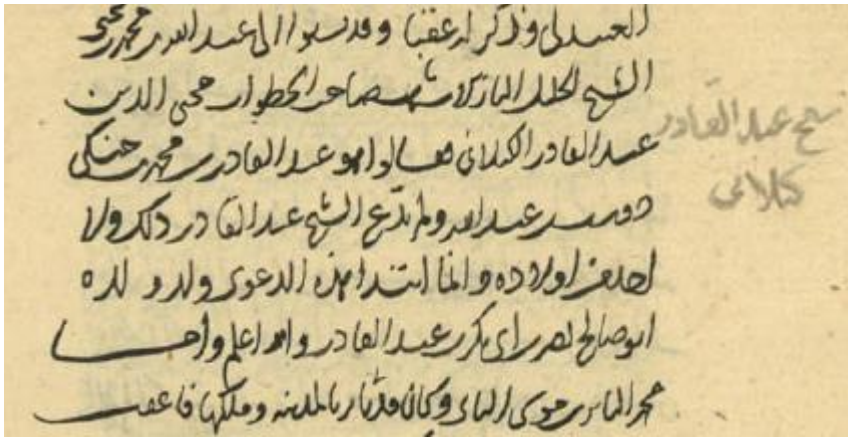 العبيدلي وذكر له عقبا وقد نسبوا الى عبد الله بن محمد بن يحيى
الشيخ الجليل الباز الاشهب صاحب الخطوات محيى الدين
عبد القادر الكيلانى فقالوا هو عبد القادر بن محمد بن جنكى
دوست بن عبد الله ولم يدّع الشيخ عبد القادر ذلك ولا
احد من اولاده وانما ابتدا بهذه الدعوى ولد ولده
ابو صالح نصر بن ابى بكر بن عبد القادر والله اعلم واما
محمد بن موسى الثانى وكان قد ثار بالمدينه وملكها فاعقب
شيخ عبد القادر
كيلانى